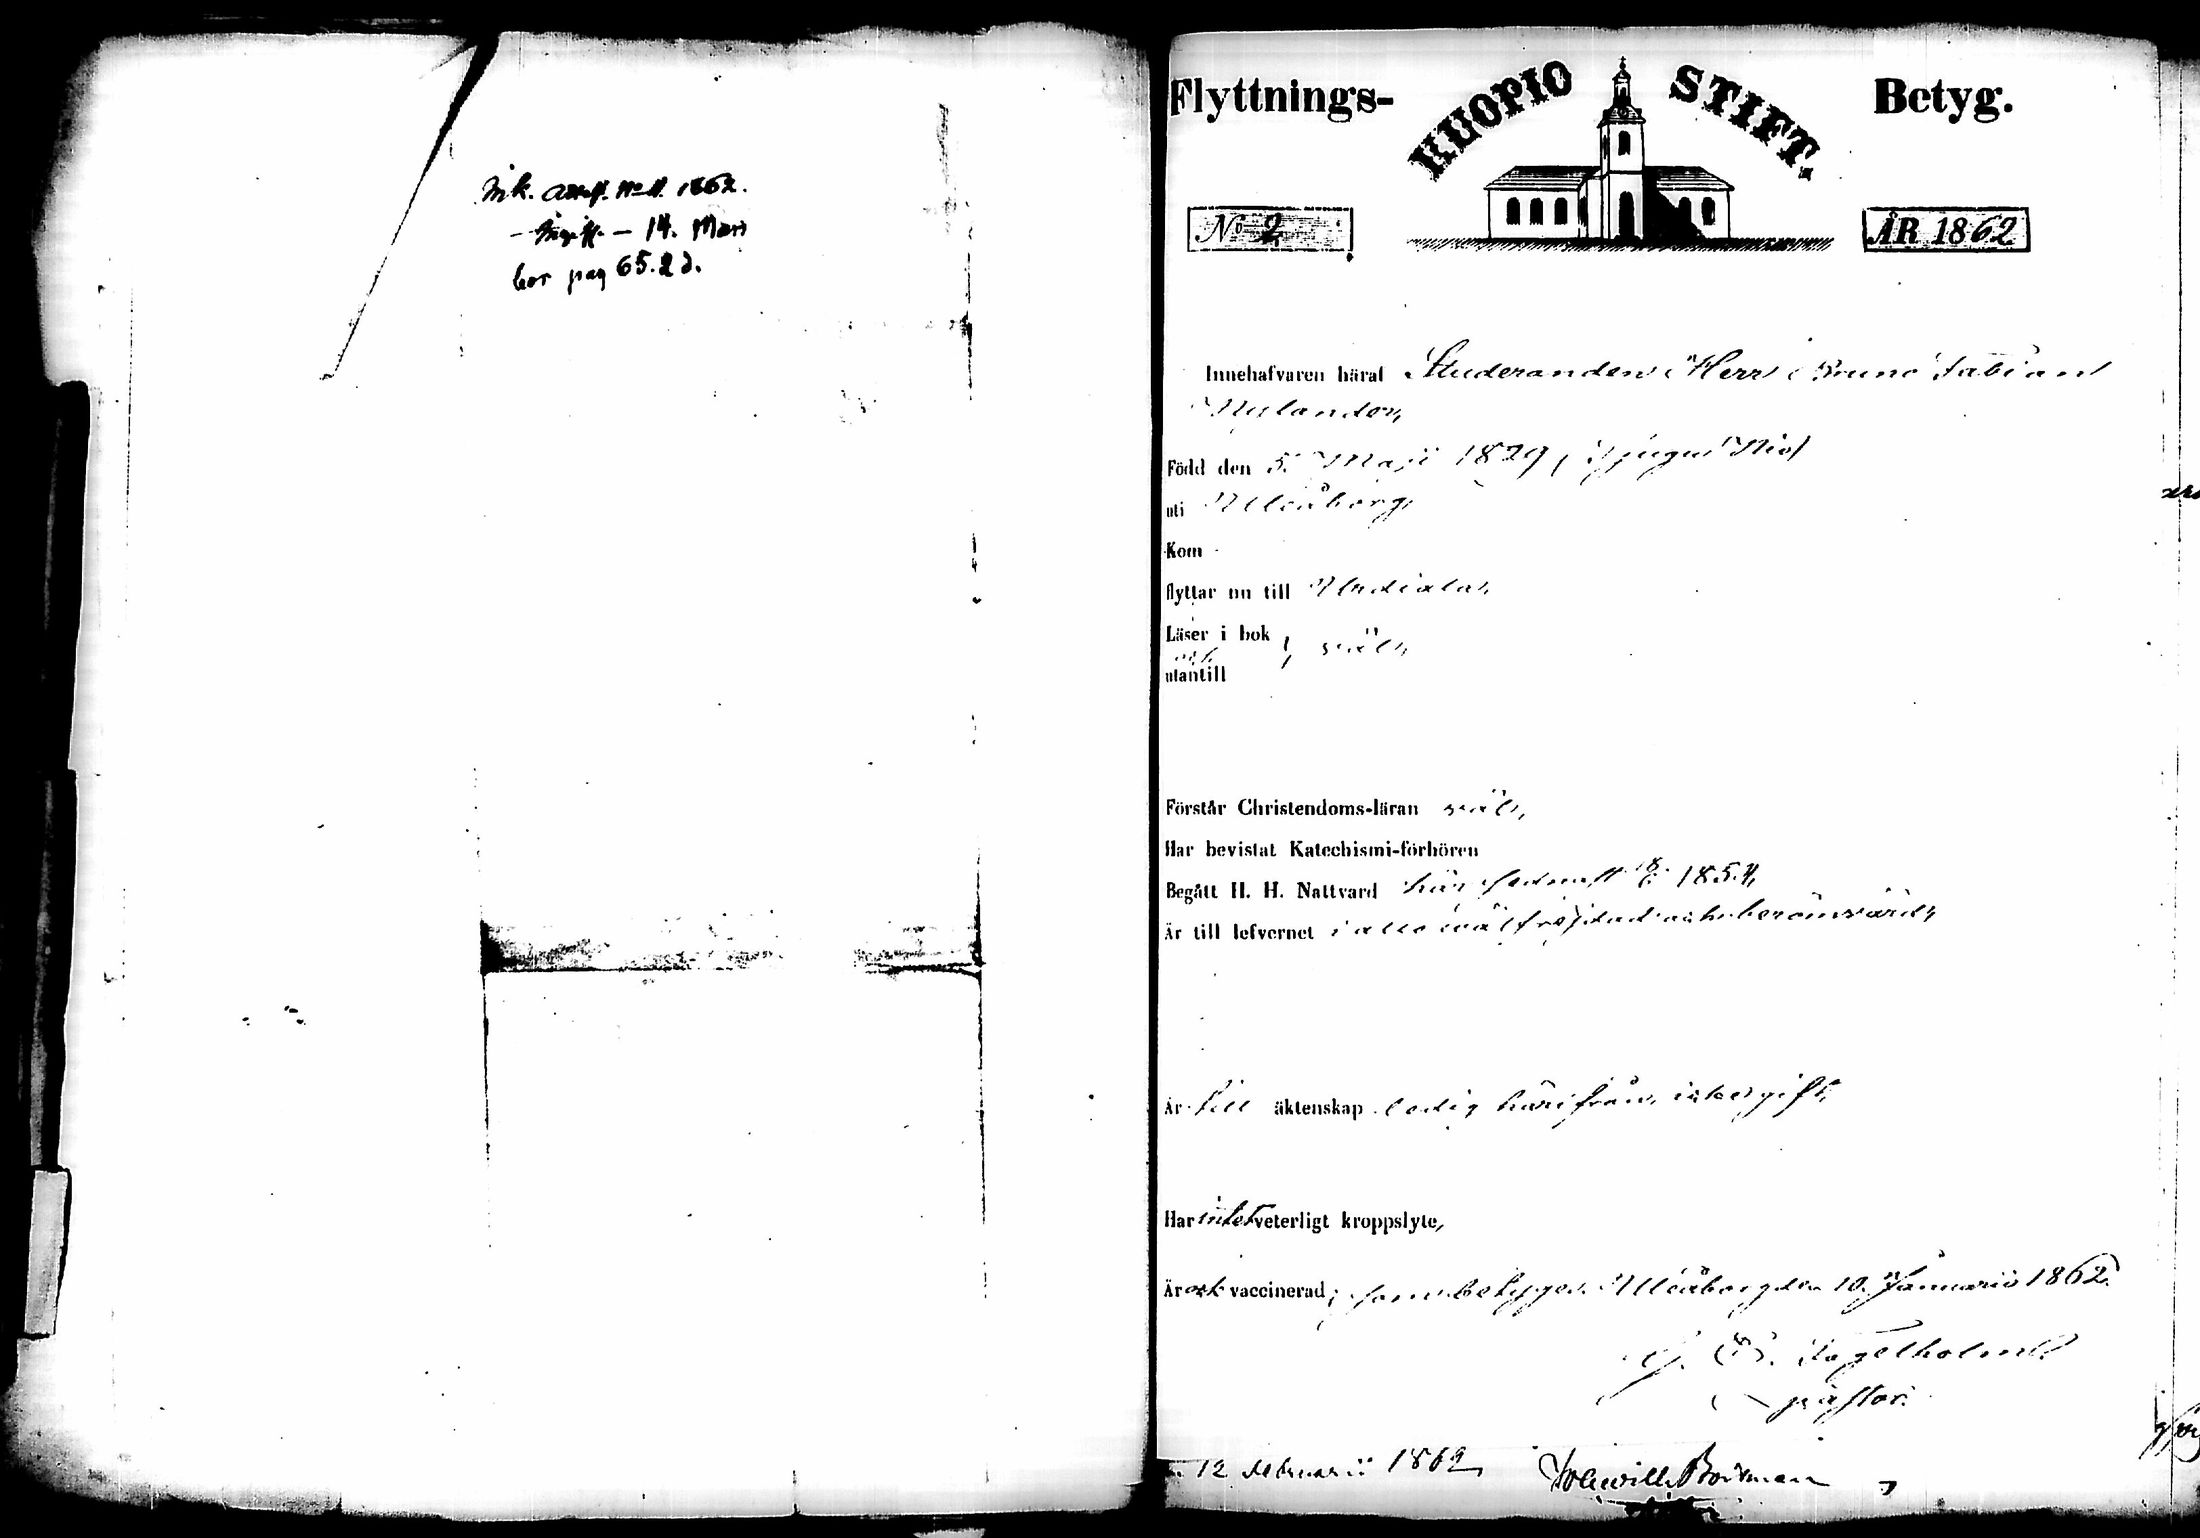 Ink. attest. No 11. 1862.
14. Mars
bor pag 65. 2 d.
Flyttnings- KUOPIO STIFT. Betyg.
No 2
ÅR 1862
Innehafvaren häraf Studeranden Herr Bruno Fabian
Nylander,
Född den 5. Maji 1829, tjugu Nio
uti Uleåborg,
Kom
flyttar nu till Urdiala,
Läser i bok
och väl,
utantill
Förstår Christendoms-läran väl,
Har bevistat Katechismi-förhören
Begått H. H. Nattvard här sednast 1854,
Är till lefvernet i allo välfrejdad och berömvärd,
Är till äktenskap ledig härifrån,
Har intet veterligt kroppslyte,
Är ock vaccinerad; som betyges. Uleåborg den 10. Januarii 1862.
Fagelholm
pastor.
12 Februarii 1862